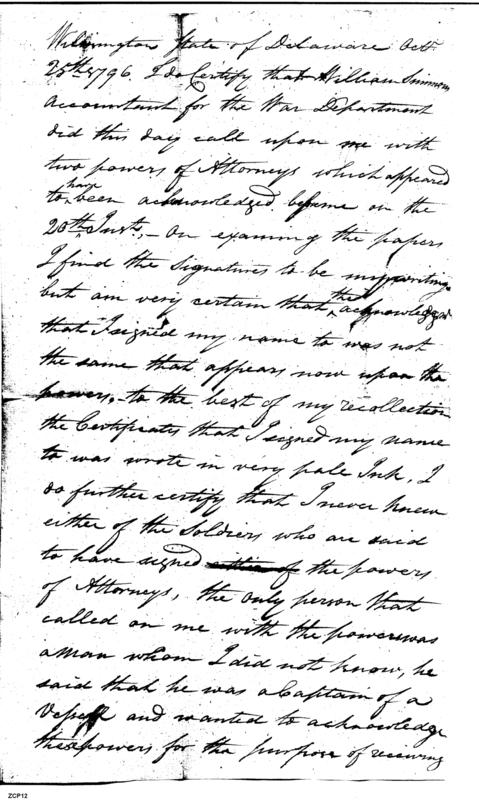 Wilmington State of Delaware Octr.
25th 1796. I do Certify that William Simmons
accountant for the War Department
did this day call upon me with
two powers of Attorneys which appeared
to have been acknowledged before me on the
20th Inst, - On examining the papers
I find the signatures to be my writing
but am very certain that the acknowledged
that I signed my name to was not
the same that appears now upon the
powers. to the best of my recollection
the Certificates that I signed my name
to was wrote in very pale Ink, I
do further certify that I never knew
either of the Soldiers who are said
to have signed either of the powers
of Attorneys, the only person that
called on me with the powers was
a Man whom I did not know, he
said that he was a Captain of a
Vessell and wanted to acknowledge
these powers for the purpose of receiving
ZCP12